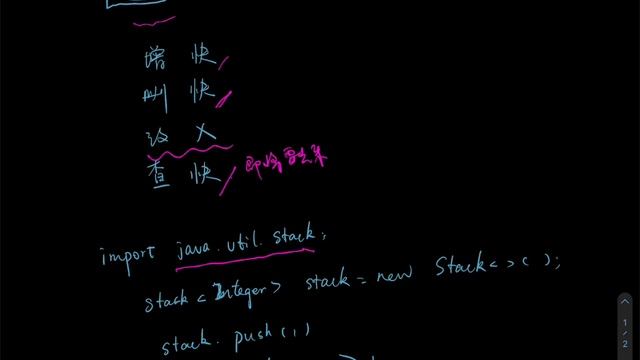 增 快
删 快
改 ✕
查 快 即将要出来
import java.util.Stack;
Stack<Integer> stack = new Stack<>();
stack.push(1)
1
2